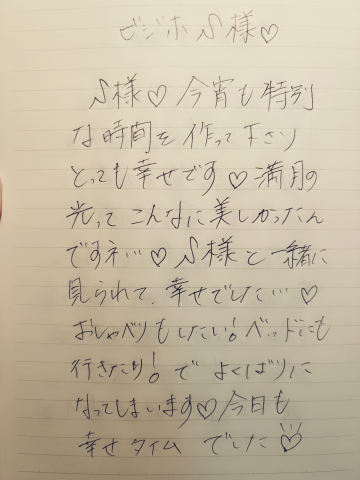 ビジホ S様♡
S様♡今宵も特別
な時間を作って下さり
とっても幸せです♡満月の
光ってこんなに美しかったん
ですネ…♡S様と一緒に
見られて、幸せでした…♡
おしゃべりもしたい!ベッドにも
行きたい!でよくばりに
なってしまいます♡今日も
幸せタイムでした♡